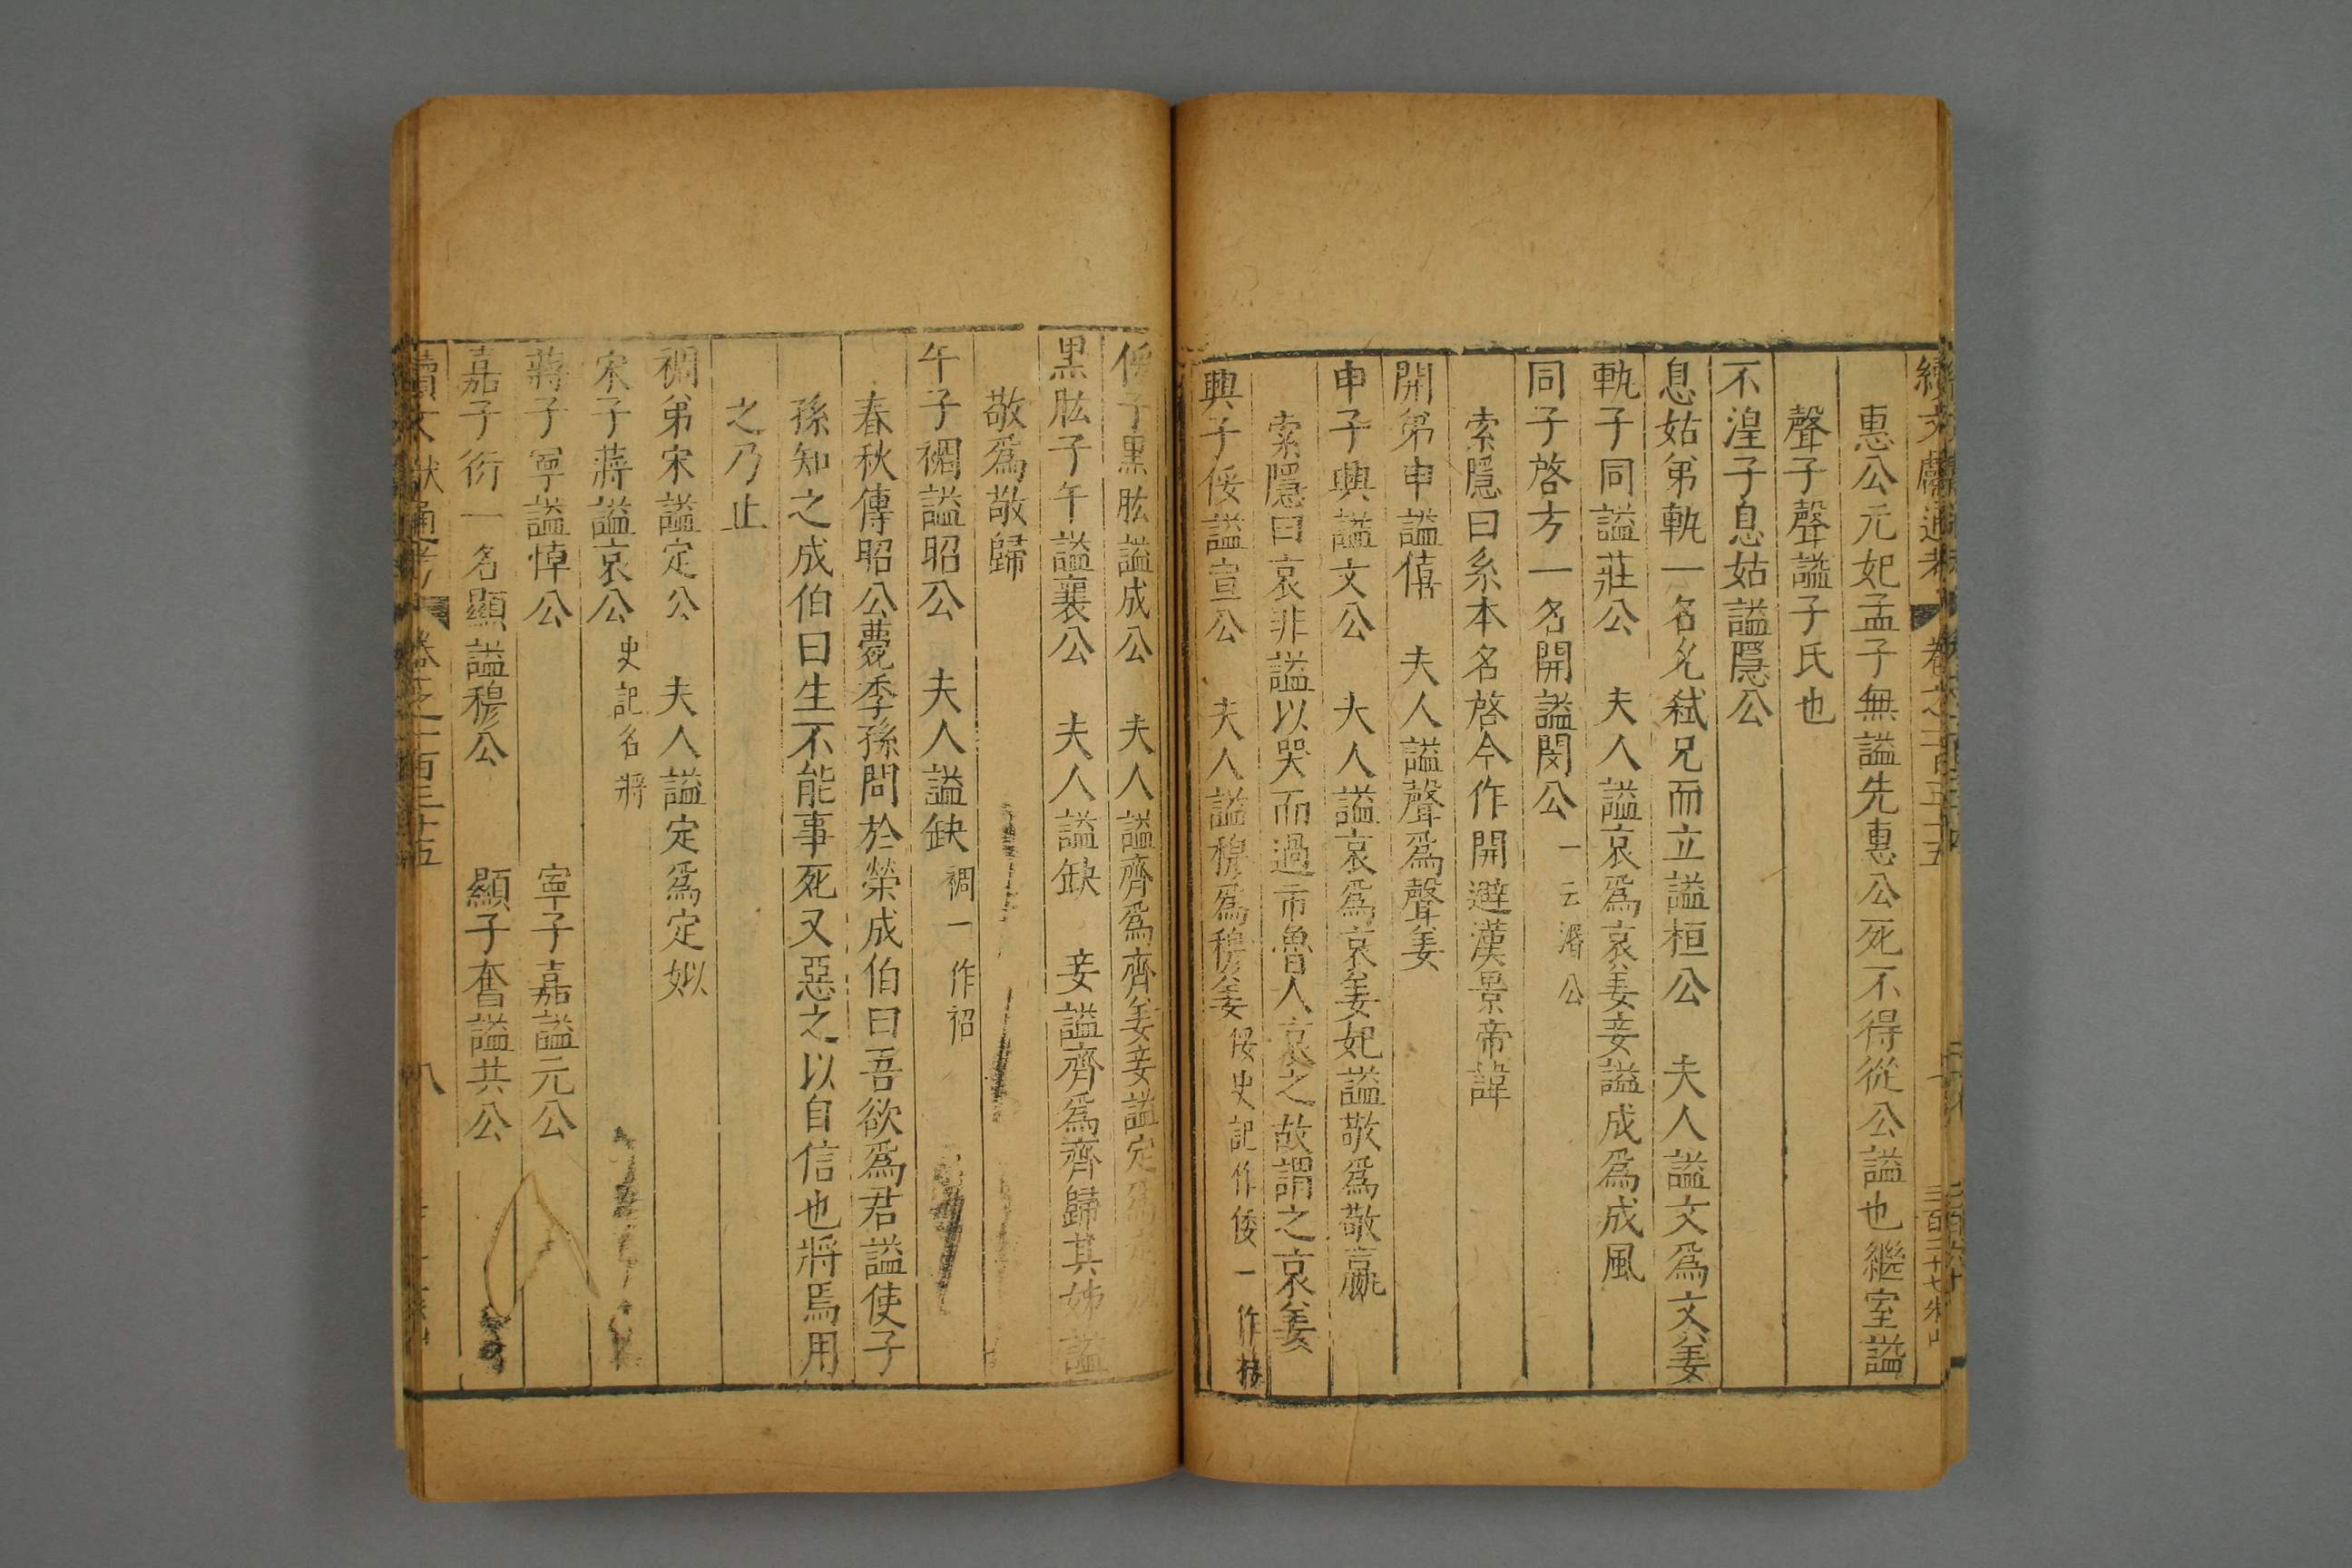 續文獻通考 卷之一百三十五
惠公元妃孟子無謚先惠公死不得從公謚也繼室謚
聲子聲謚子氏也
不湟子息姑謚隱公
息姑弟軌一名允弑兄而立謚桓公 夫人謚文爲文姜
軌子同謚莊公 夫人謚哀爲哀姜妾謚成爲成風
同子啓方一名開謚閔公 一云湣公
索隱曰系本名啓今作開避漢景帝諱
開弟申謚僖 夫人謚聲爲聲姜
申子興謚文公 大人謚哀爲哀姜妃謚敬爲敬嬴
索隱曰哀非謚以哭而過市魯人哀之故謂之哀姜
興子倭謚宣公 夫人謚穆爲穆姜 倭史記作倭一作
倭子黑肱謚成公 夫人謚齊爲齊姜妾謚定爲
黑肱子午謚襄公 夫人謚缺 妾謚齊爲齊歸其姊謚
敬爲敬歸
午子裯謚昭公 夫人謚缺 裯一作袑
春秋傳昭公薨季孫問於榮成伯曰吾欲爲君謚使子
孫知之成伯曰生不能事死又惡之以自信也將焉用
之乃止
裯弟宋謚定公 夫人謚定爲定姒
宋子蔣謚哀公 史記名將
蔣子寧謚悼公 寧子嘉謚元公
嘉子衍一名顯謚穆公 顯子奮謚共公
續文獻通考 卷之一百三十五 八